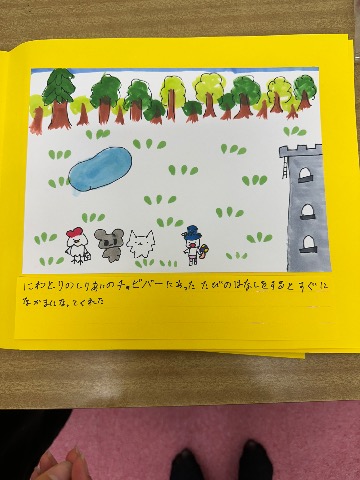 にわとりのしりあいのチョビバーにあった たびのはなしをすると すぐに
なかまになってくれた